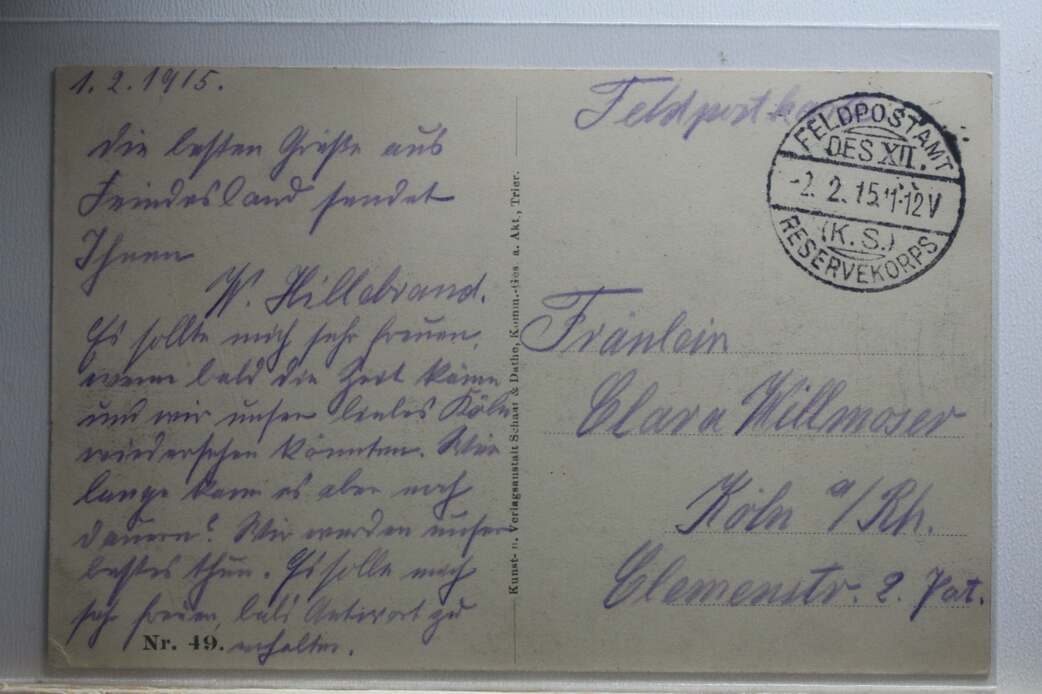 1.2.1915.
die besten Grüße aus
Feindesland sendet
Ihnen
W. Hillebrand.
Es sollte mich sehr freuen,
wenn bald die Zeit käme
und wir unser liebes Köln
wiedersehen könnten. Wie
lange kann es aber noch
dauern? Wir werden unser
bestes thun. Es solle mich
sehr freuen, bald Antwort zu
erhalten.
Nr. 49.
Kunst- u. Verlagsanstalt Schaar & Dathe, Komm.-Ges. a. Akt., Trier.
Feldpostkarte
FELDPOSTAMT
DES XII.
-2. 2. 15. 11-12V
(K. S.)
RESERVEKORPS
Fräulein
Clara Willmoser
Köln a/Rh.
Clemenstr. 2. Pat.